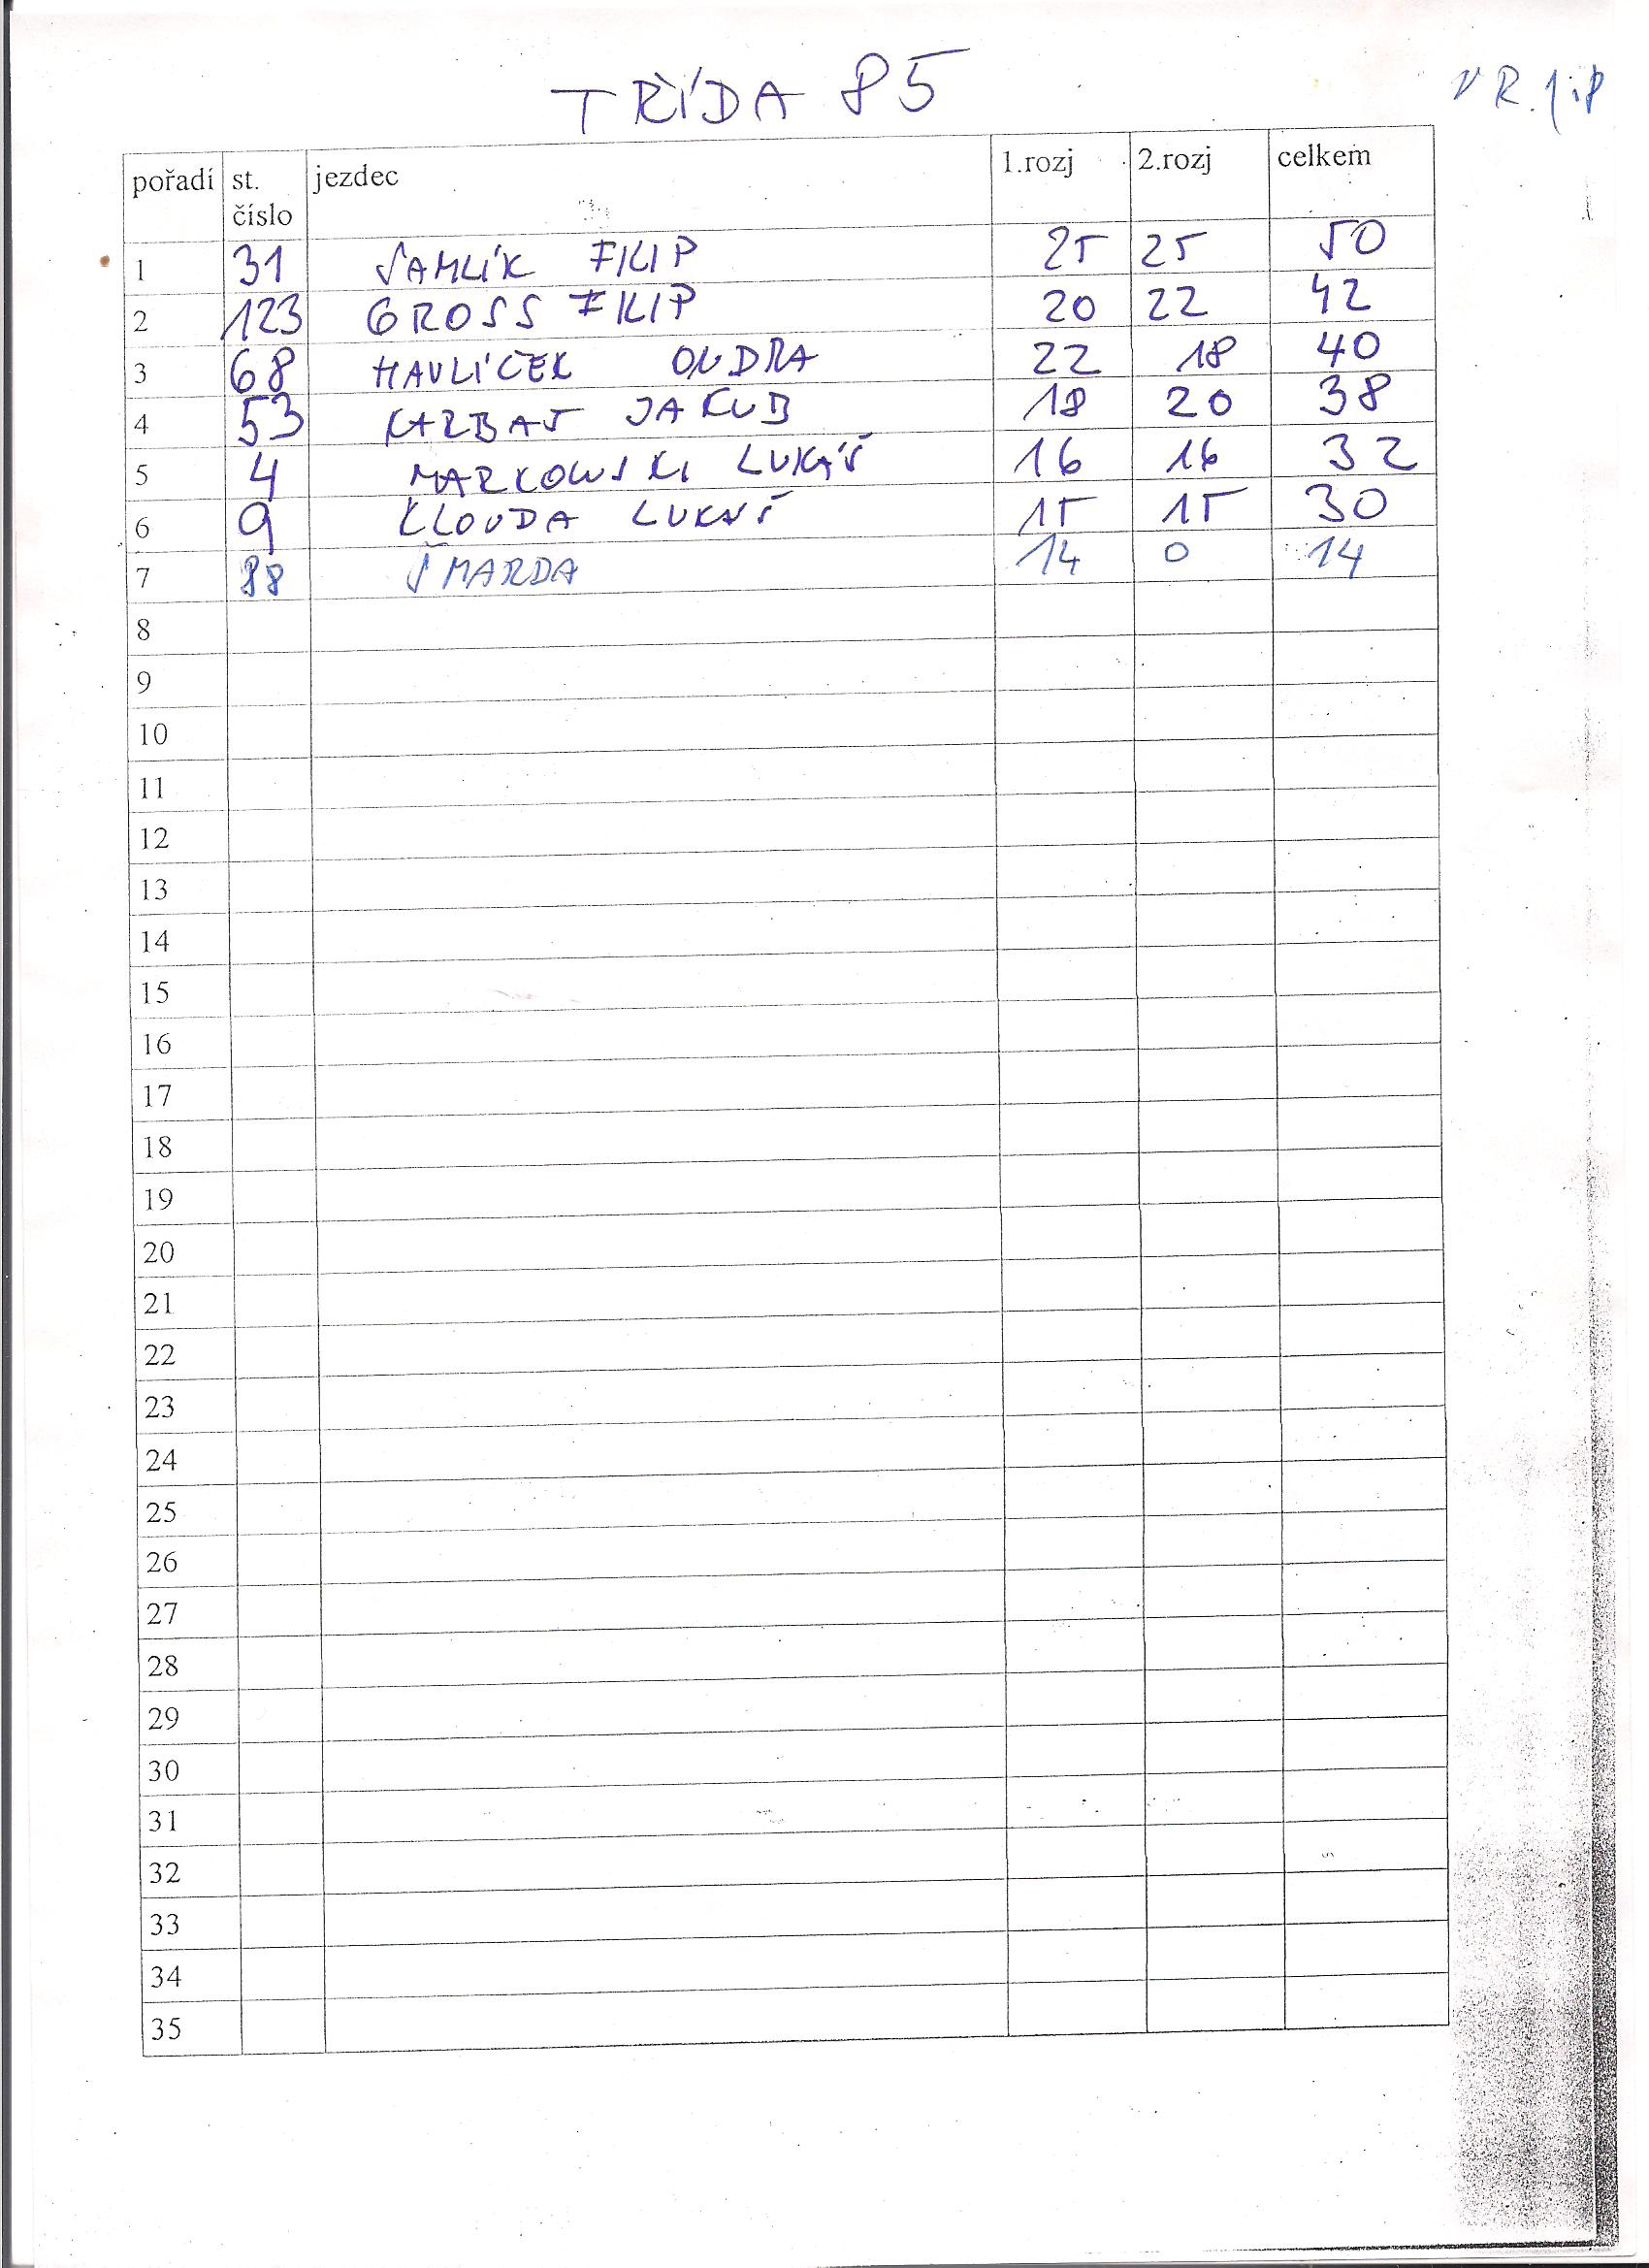 TŘÍDA 85
pořadí st. číslo jezdec 1.rozj 2.rozj celkem
1 31 SAMLÍK FILIP 25 25 50
2 123 GROSS FILIP 20 22 42
3 68 HAVLÍCEK ONDRA 22 18 40
4 53 JAKUB 18 20 38
5 4 MARKOWSKI LUKÁŠ 16 16 32
6 9 KLOUDA LUKÁŠ 15 15 30
7 88 ŠMARDA 14 0 14
8
9
10
11
12
13
14
15
16
17
18
19
20
21
22
23
24
25
26
27
28
29
30
31
32
33
34
35